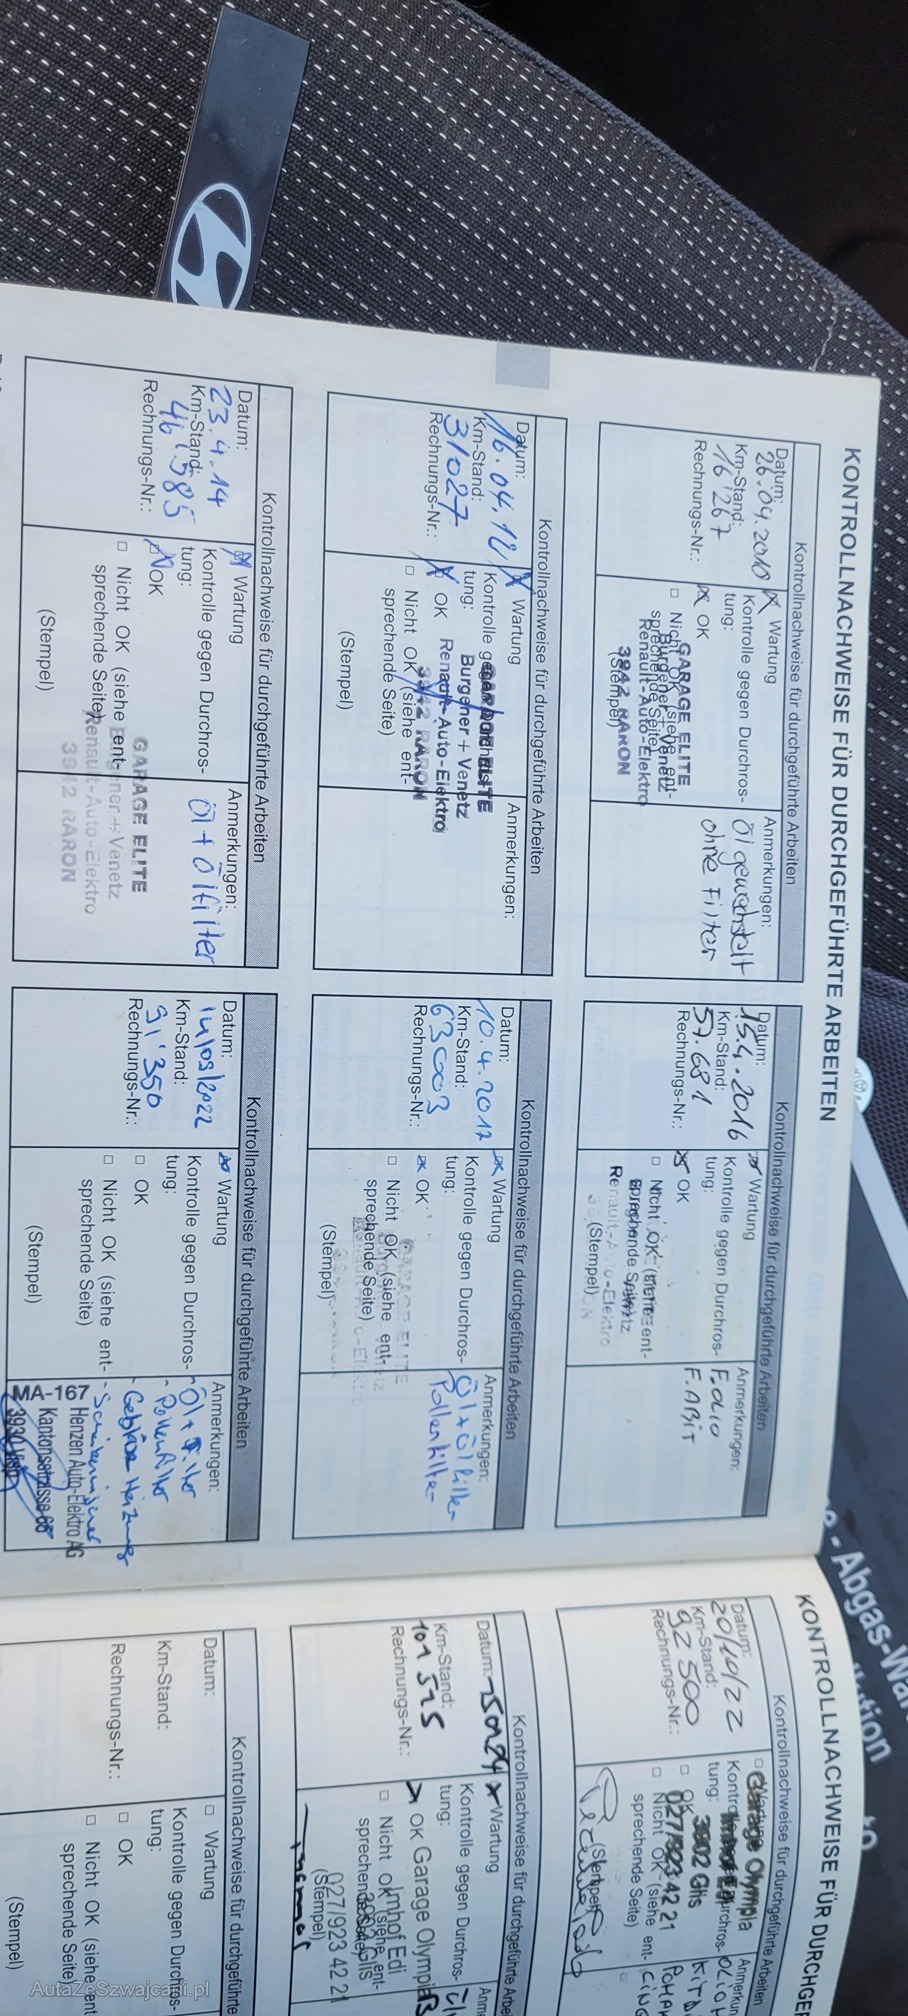 KONTROLLNACHWEISE FÜR DURCHGEFÜHRTE ARBEITEN
Kontrollnachweise für durchgeführte Arbeiten
Datum:
26.04.2010
Km-Stand:
16'267
Rechnungs-Nr.:
Wartung
Kontrolle gegen Durchros-
tung:
OK
Nicht OK (siehe ent-
sprechende Seite)
(Stempel)
GARAGE ELITE
Burgener + Venetz
Renault-Auto-Elektro
3942 RARON
Anmerkungen:
Öl gewechselt
ohne Filter
Kontrollnachweise für durchgeführte Arbeiten
Datum:
16.04.12
Km-Stand:
31027
Rechnungs-Nr.:
Wartung
Kontrolle gegen Durchros-
tung:
OK
Nicht OK (siehe ent-
sprechende Seite)
(Stempel)
GARAGE ELITE
Burgener + Venetz
Renault-Auto-Elektro
3942 RARON
Anmerkungen:
Kontrollnachweise für durchgeführte Arbeiten
Datum:
23.4.14
Km-Stand:
46'585
Rechnungs-Nr.:
Wartung
Kontrolle gegen Durchros-
tung:
OK
Nicht OK (siehe ent-
sprechende Seite)
(Stempel)
GARAGE ELITE
Burgener + Venetz
Renault-Auto-Elektro
3942 RARON
Anmerkungen:
Öl + Ölfilter
Kontrollnachweise für durchgeführte Arbeiten
Datum:
15.4.2016
Km-Stand:
57.681
Rechnungs-Nr.:
Wartung
Kontrolle gegen Durchros-
tung:
OK
Nicht OK (siehe ent-
sprechende Seite)
(Stempel)
Renault-Auto-Elektro
Anmerkungen:
Kontrollnachweise für durchgeführte Arbeiten
Datum:
10.4.2017
Km-Stand:
63003
Rechnungs-Nr.:
Wartung
Kontrolle gegen Durchros-
tung:
OK
Nicht OK (siehe ent-
sprechende Seite)
(Stempel)
GARAGE ELITE
Anmerkungen:
Öl + Ölfilter
Pollenfilter
Kontrollnachweise für durchgeführte Arbeiten
Datum:
14/03/2022
Km-Stand:
91'350
Rechnungs-Nr.:
Wartung
Kontrolle gegen Durchros-
tung:
OK
Nicht OK (siehe ent-
sprechende Seite)
(Stempel)
Anmerkungen:
- Öl + Filter
- Pollenfilter
- Gebläse Heizung
MA-167
Henzen Auto-Elektro AG
Kantonsstrasse
3930 Visp
KONTROLLNACHWEISE FÜR DURCHGE
Kontrollnachweise für durchgeführte Arbeiten
Datum:
20/10/22
Km-Stand:
92 500
Rechnungs-Nr.:
tung:
OK
Nicht OK (siehe ent-
sprechende Seite)
(Stempel)
Garage Olympia
3902 Glis
027/923 42 21
Kontrollnachweise für durchgeführte Arbeiten
Datum:
Km-Stand:
101 525
Rechnungs-Nr.:
Wartung
Kontrolle gegen Durchros-
tung:
OK
Nicht OK (siehe ent-
sprechende Seite)
(Stempel)
Garage Olympia
Imhof Edi
3902 Glis
027/923 42 21
Kontrollnachweise für durchgeführte
Datum:
Km-Stand:
Rechnungs-Nr.:
Wartung
Kontrolle gegen Durchros-
tung:
OK
Nicht OK (siehe ent
sprechende Seite)
(Stempel)
AutaZeSzwajcarii.pl